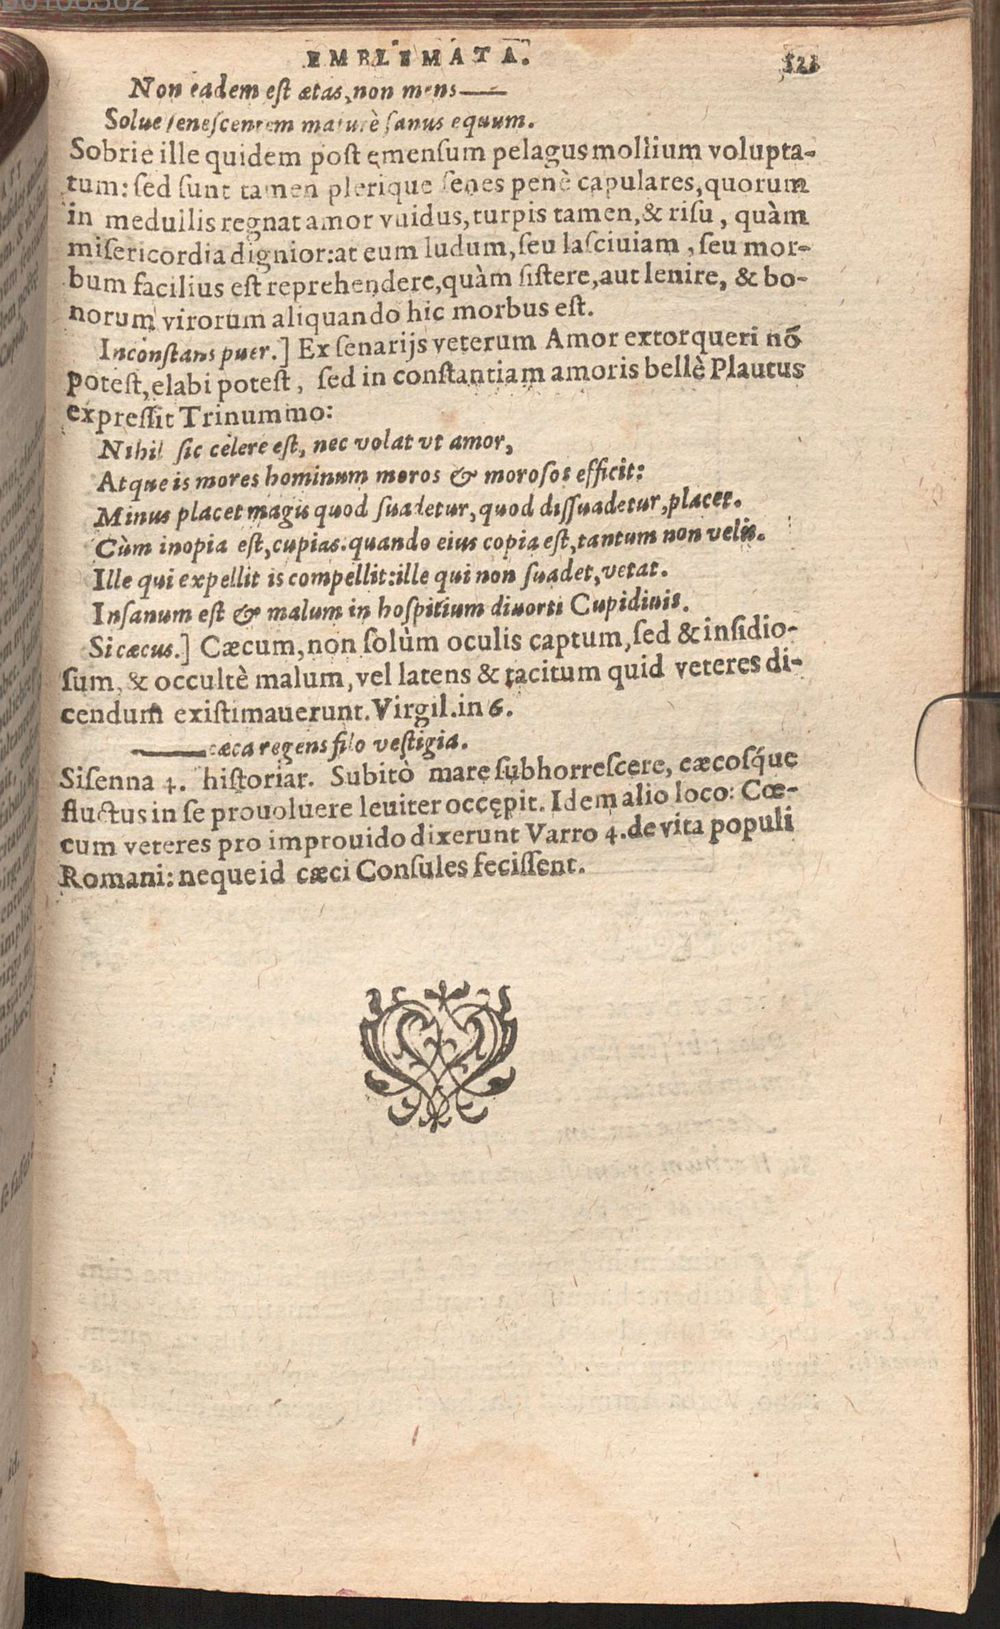 EMBLEMATA. 521
Non eadem est ætas, non mens——
Solue senescentem maturè sanus equum.
Sobrie ille quidem post emensum pelagus mollium volupta-
tum: sed sunt tamen plerique senes penè capulares, quorum
in medullis regnat amor vuidus, turpis tamen, & risu, quàm
misericordia dignior: at eum ludum, seu lasciuiam, seu mor-
bum facilius est reprehendere, quàm sistere, aut lenire, & bo-
norum virorum aliquando hic morbus est.
Inconstans puer.] Ex senarijs veterum Amor extorqueri nō
potest, elabi potest, sed in constantiam amoris bellè Plautus
expressit Trinummo:
Nihil sic celere est, nec volat vt amor,
Atque is mores hominum moros & morosos efficit:
Minus placet magis quod suadetur, quod dissuadetur, placet.
Cùm inopia est, cupias. quando eius copia est, tantum non velis.
Ille qui expellit is compellit: ille qui non suadet, vetat.
Insanum est & malum in hospitium diuorti Cupidinis.
Si cæcus.] Cæcum, non solùm oculis captum, sed & insidio-
sum, & occultè malum, vel latens & tacitum quid veteres di-
cendum existimauerunt. Virgil. in 6.
——cæca regens filo vestigia.
Sisenna 4. historiar. Subitò mare subhorrescere, cæcosq́ue
fluctus in se prouoluere leuiter occępit. Idem alio loco: Cœ-
cum veteres pro improuido dixerunt Varro 4. de vita populi
Romani: neque id cæci Consules fecissent.